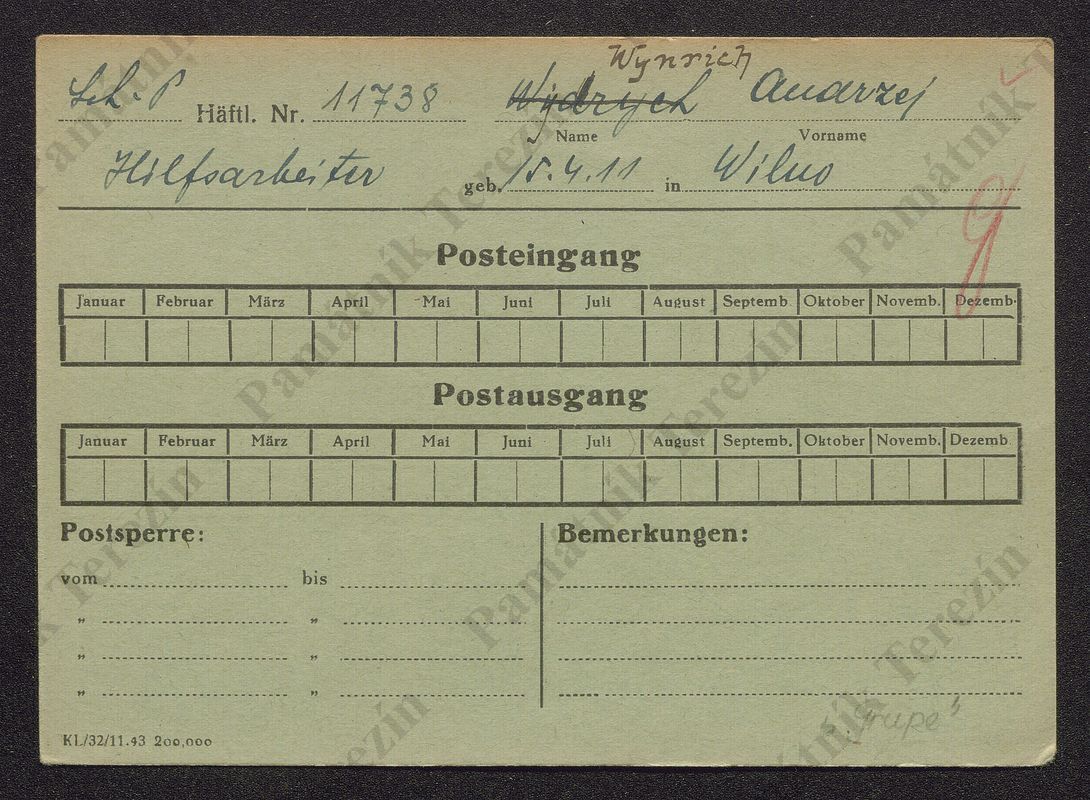 Wynrich
Sch. P Häftl. Nr. 11738 Wydrych Andrzej
Name Vorname
Hilfsarbeiter geb. 15.4.11 in Wilno
Posteingang
Januar Februar März April Mai Juni Juli August Septemb. Oktober Novemb. Dezemb.
Postausgang
Januar Februar März April Mai Juni Juli August Septemb. Oktober Novemb. Dezemb.
Postsperre: Bemerkungen:
vom bis
„ „
„ „
„ „
KL/32/11.43 200,000
Památník Terezín